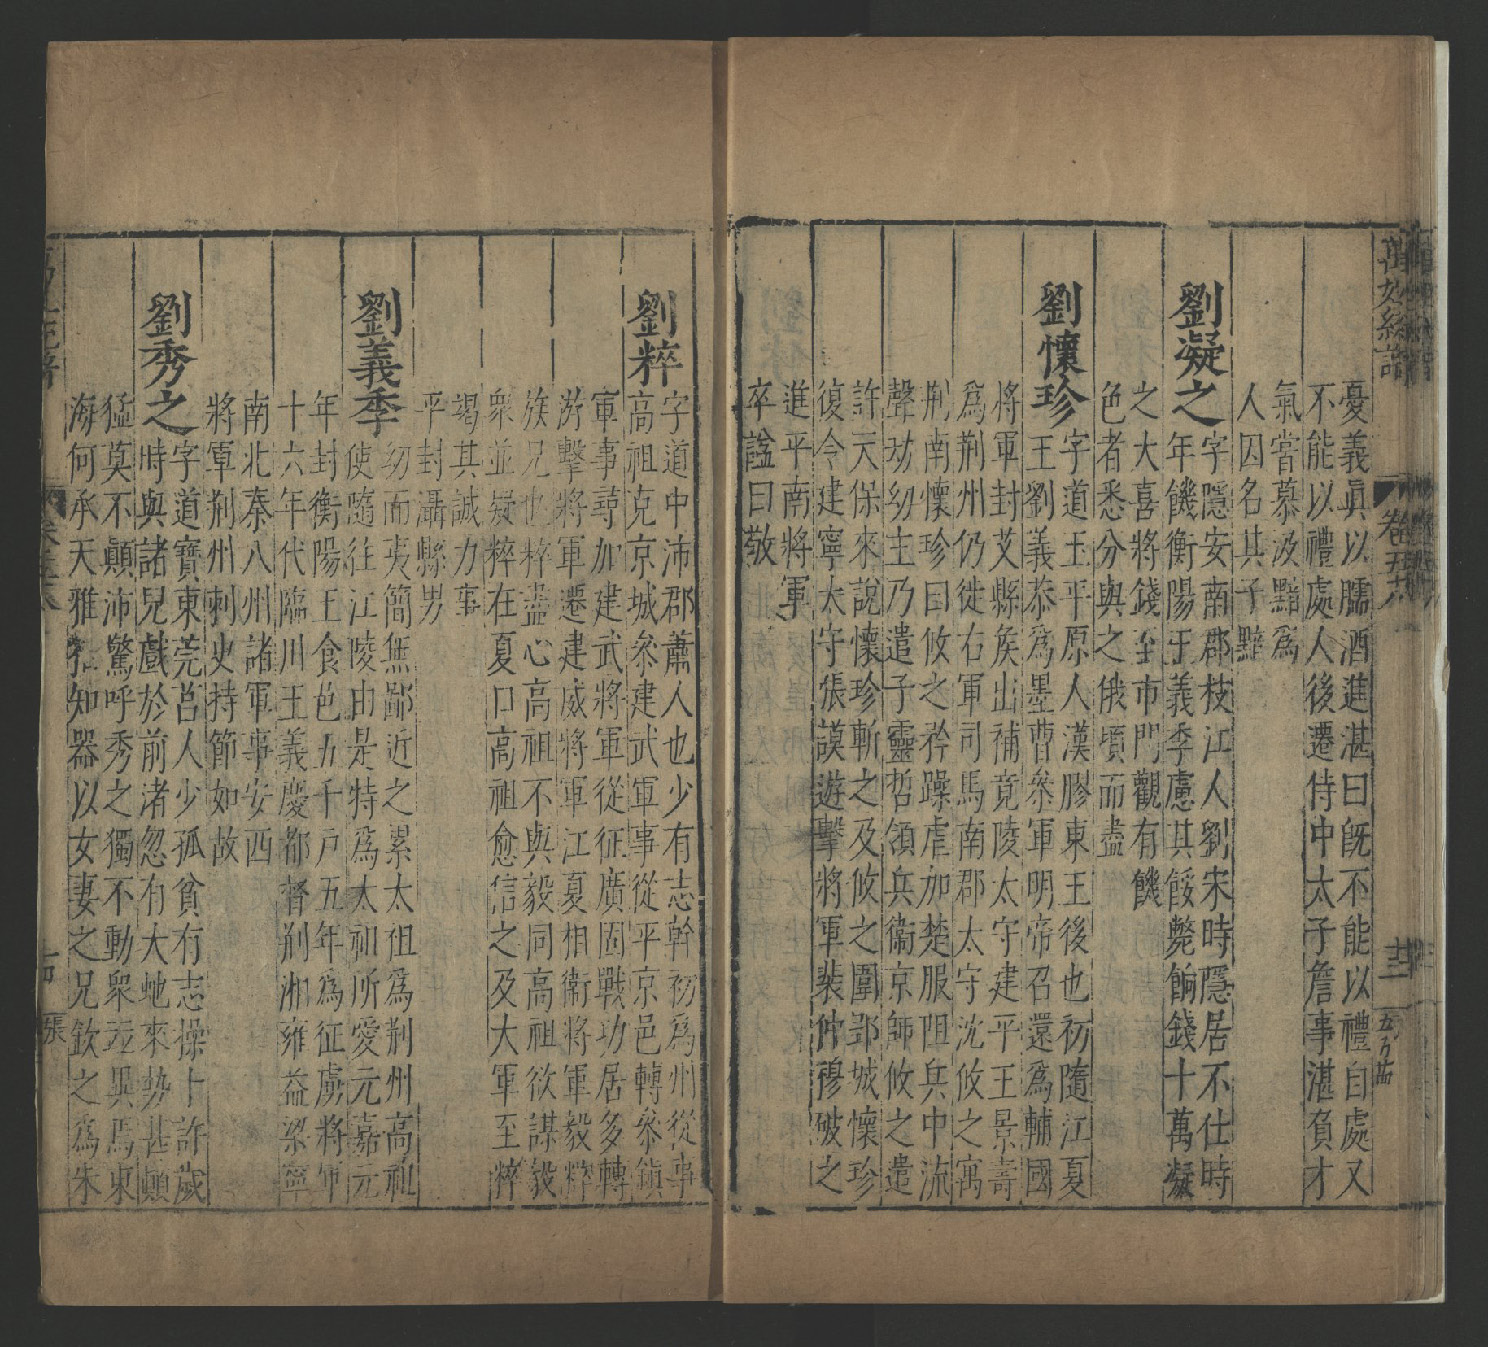 萬姓統譜
卷五十八
憂義眞以臑酒進湛曰旣不能以禮自處又
不能以禮處人後遷侍中太子詹事湛負才
氣嘗慕汲黯為
人因名其子黯
劉凝之字隱安南郡枝江人劉宋時隱居不仕時
年饑衡陽王義季慮其餒斃餉錢十萬凝
之大喜將錢至市門觀有饑
色者悉分與之俄頃而盡
劉懷珍字道玉平原人漢膠東王後也初隨江夏
王劉義恭爲墨曹叅軍明帝召還爲輔國
將軍封艾縣矦出補竟陵太守建平王景壽
爲荆州仍徙右軍司馬南郡太守沈攸之寓
荆南懷珍曰攸之矜躁虐加楚服阻兵中流
聲劾幼主乃遣子靈哲領兵衞京師攸之遣
許天保來說懷珍斬之及攸之圍郢城懷珍
復令建寧太守張謨遊擊將軍裴仲穆破之
進平南將軍
卒諡曰敬
劉粹字道中沛郡蕭人也少有志幹初爲州從事
高祖克京城叅建武軍事從平京邑轉叅鎭
軍事尋加建武將軍從征廣固戰功居多轉
游擊將軍遷建威將軍江夏相衞將軍毅粹
族兄也粹盡心高祖不與毅同高祖欲謀毅
衆並疑粹在夏口高祖愈信之及大軍至粹
竭其誠力事
平封灄縣男
劉義季幼而夷簡無鄙近之累太祖爲荆州高祖
使隨往江陵由是特爲太祖所愛元嘉元
年封衡陽王食邑五千戸五年爲征虜將軍
十六年代臨川王義慶都督荆湘雍益梁寧
南北秦八州諸軍事安西
將軍荆州刺史持節如故
劉秀之字道寶東莞莒人少孤貧有志操十許歲
時與諸兒戲於前渚忽有大虵來勢甚顚
猛莫不顚沛驚呼秀之獨不動衆並異焉東
海何承天雅相知器以女妻之兄欽之爲朱